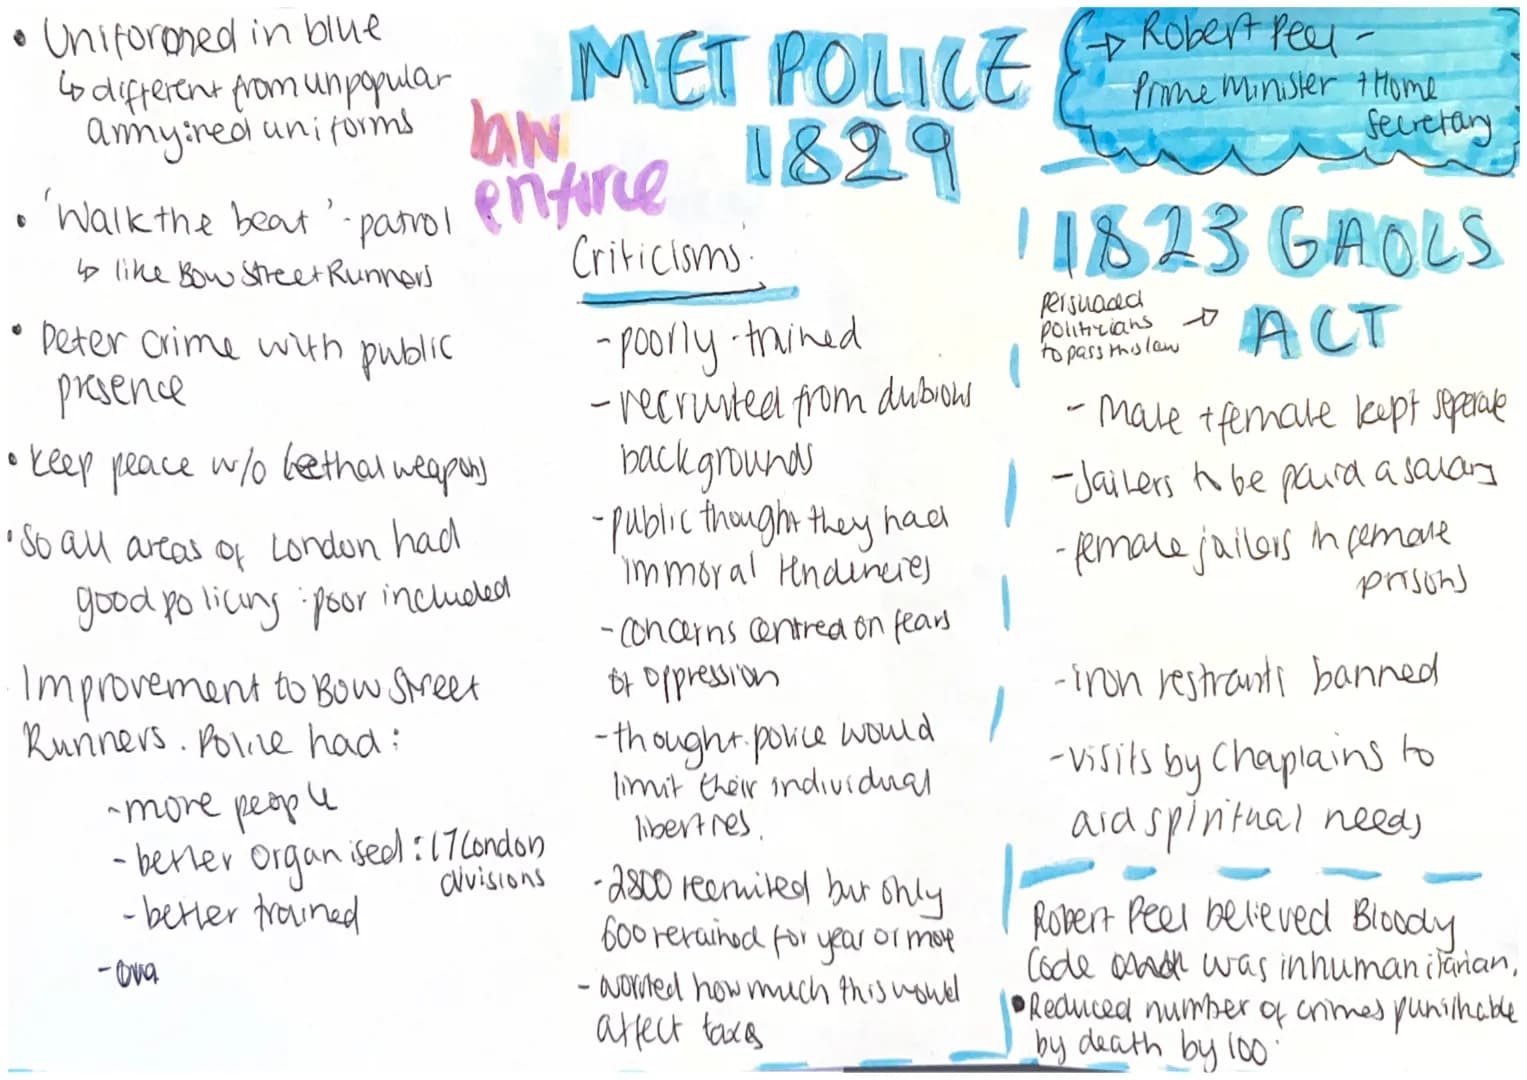 • Uniformed in blue
↳ different from unpopular
army: red uniforms
• 'Walk the beat' - patrol
↳ like Bow Street Runners
• Deter crime with public
presence
• Keep peace w/o lethal weapons
• So all areas of London had
good policing : poor included
Improvement to Bow Street
Runners. Police had:
- more people
- better organised : 17 London
divisions
- better trained
law
enforce
MET POLICE
1829
Criticisms:
- poorly-trained
- recruited from dubious
backgrounds
- public thought they had
immoral tendencies
- concerns centred on fears
of oppression
- thought police would
limit their individual
liberties.
- 2800 recruited but only
600 remained for year or more
- worried how much this would
affect taxes
→ Robert Peel -
Prime Minister + Home
Secretary
1823 GAOLS
ACT
persuaded
politicians →
to pass this law
- Male + female kept seperate
- Jailers to be paid a salary
- female jailers in female
prisons
- iron restraints banned
- visits by Chaplains to
aid spiritual needs
Robert Peel believed Bloody
Code was inhumanitarian.
• Reduced number of crimes punishable
by death by 100